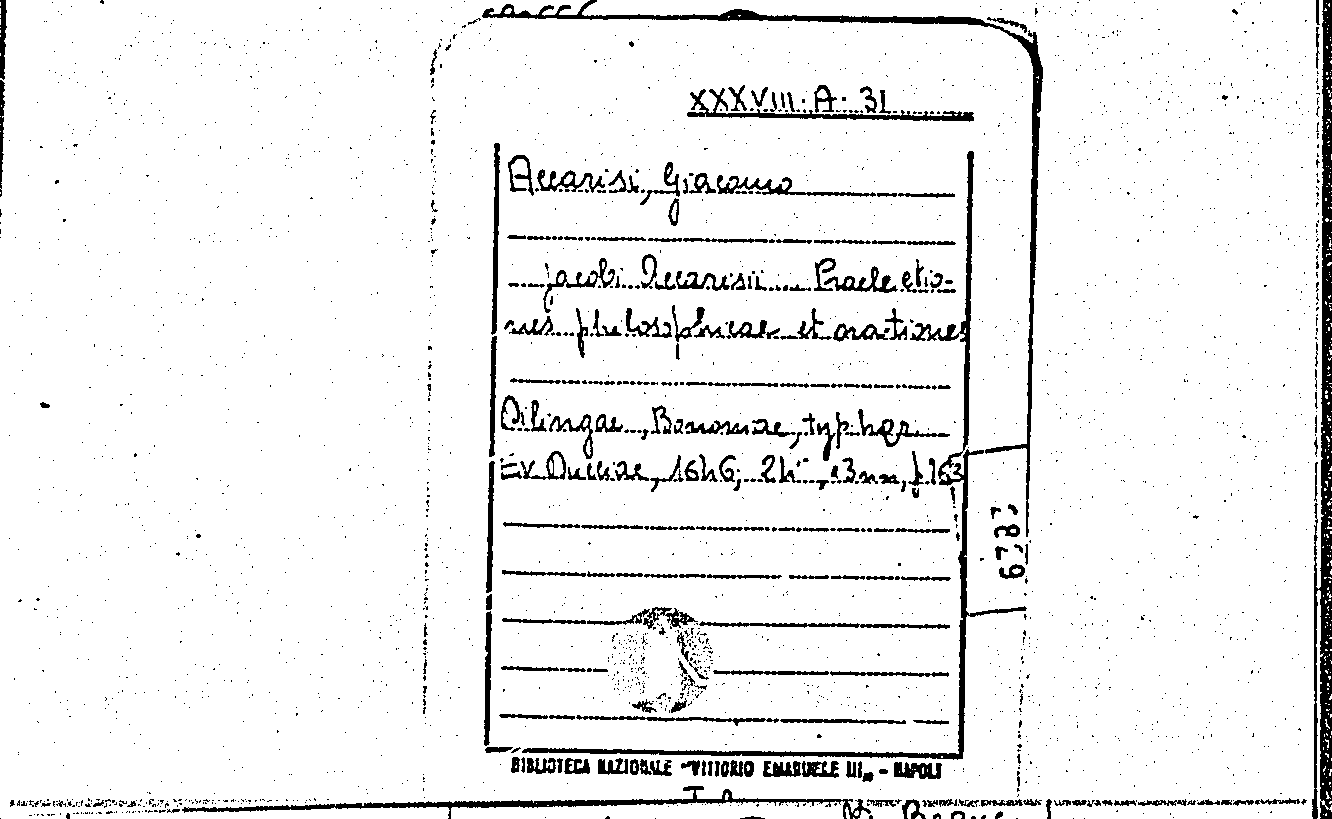 XXXVIII. A. 31
Accarisi, Giacomo
Jacobi Accarisii ... Praelectio-
nes philosophicae et orationes
Dilingae, Bononiae, typ. her.
Ev. Ducciae, 1646; 24°, 13 nn, p. 163
6787
BIBLIOTECA NAZIONALE "VITTORIO EMANUELE III" - NAPOLI